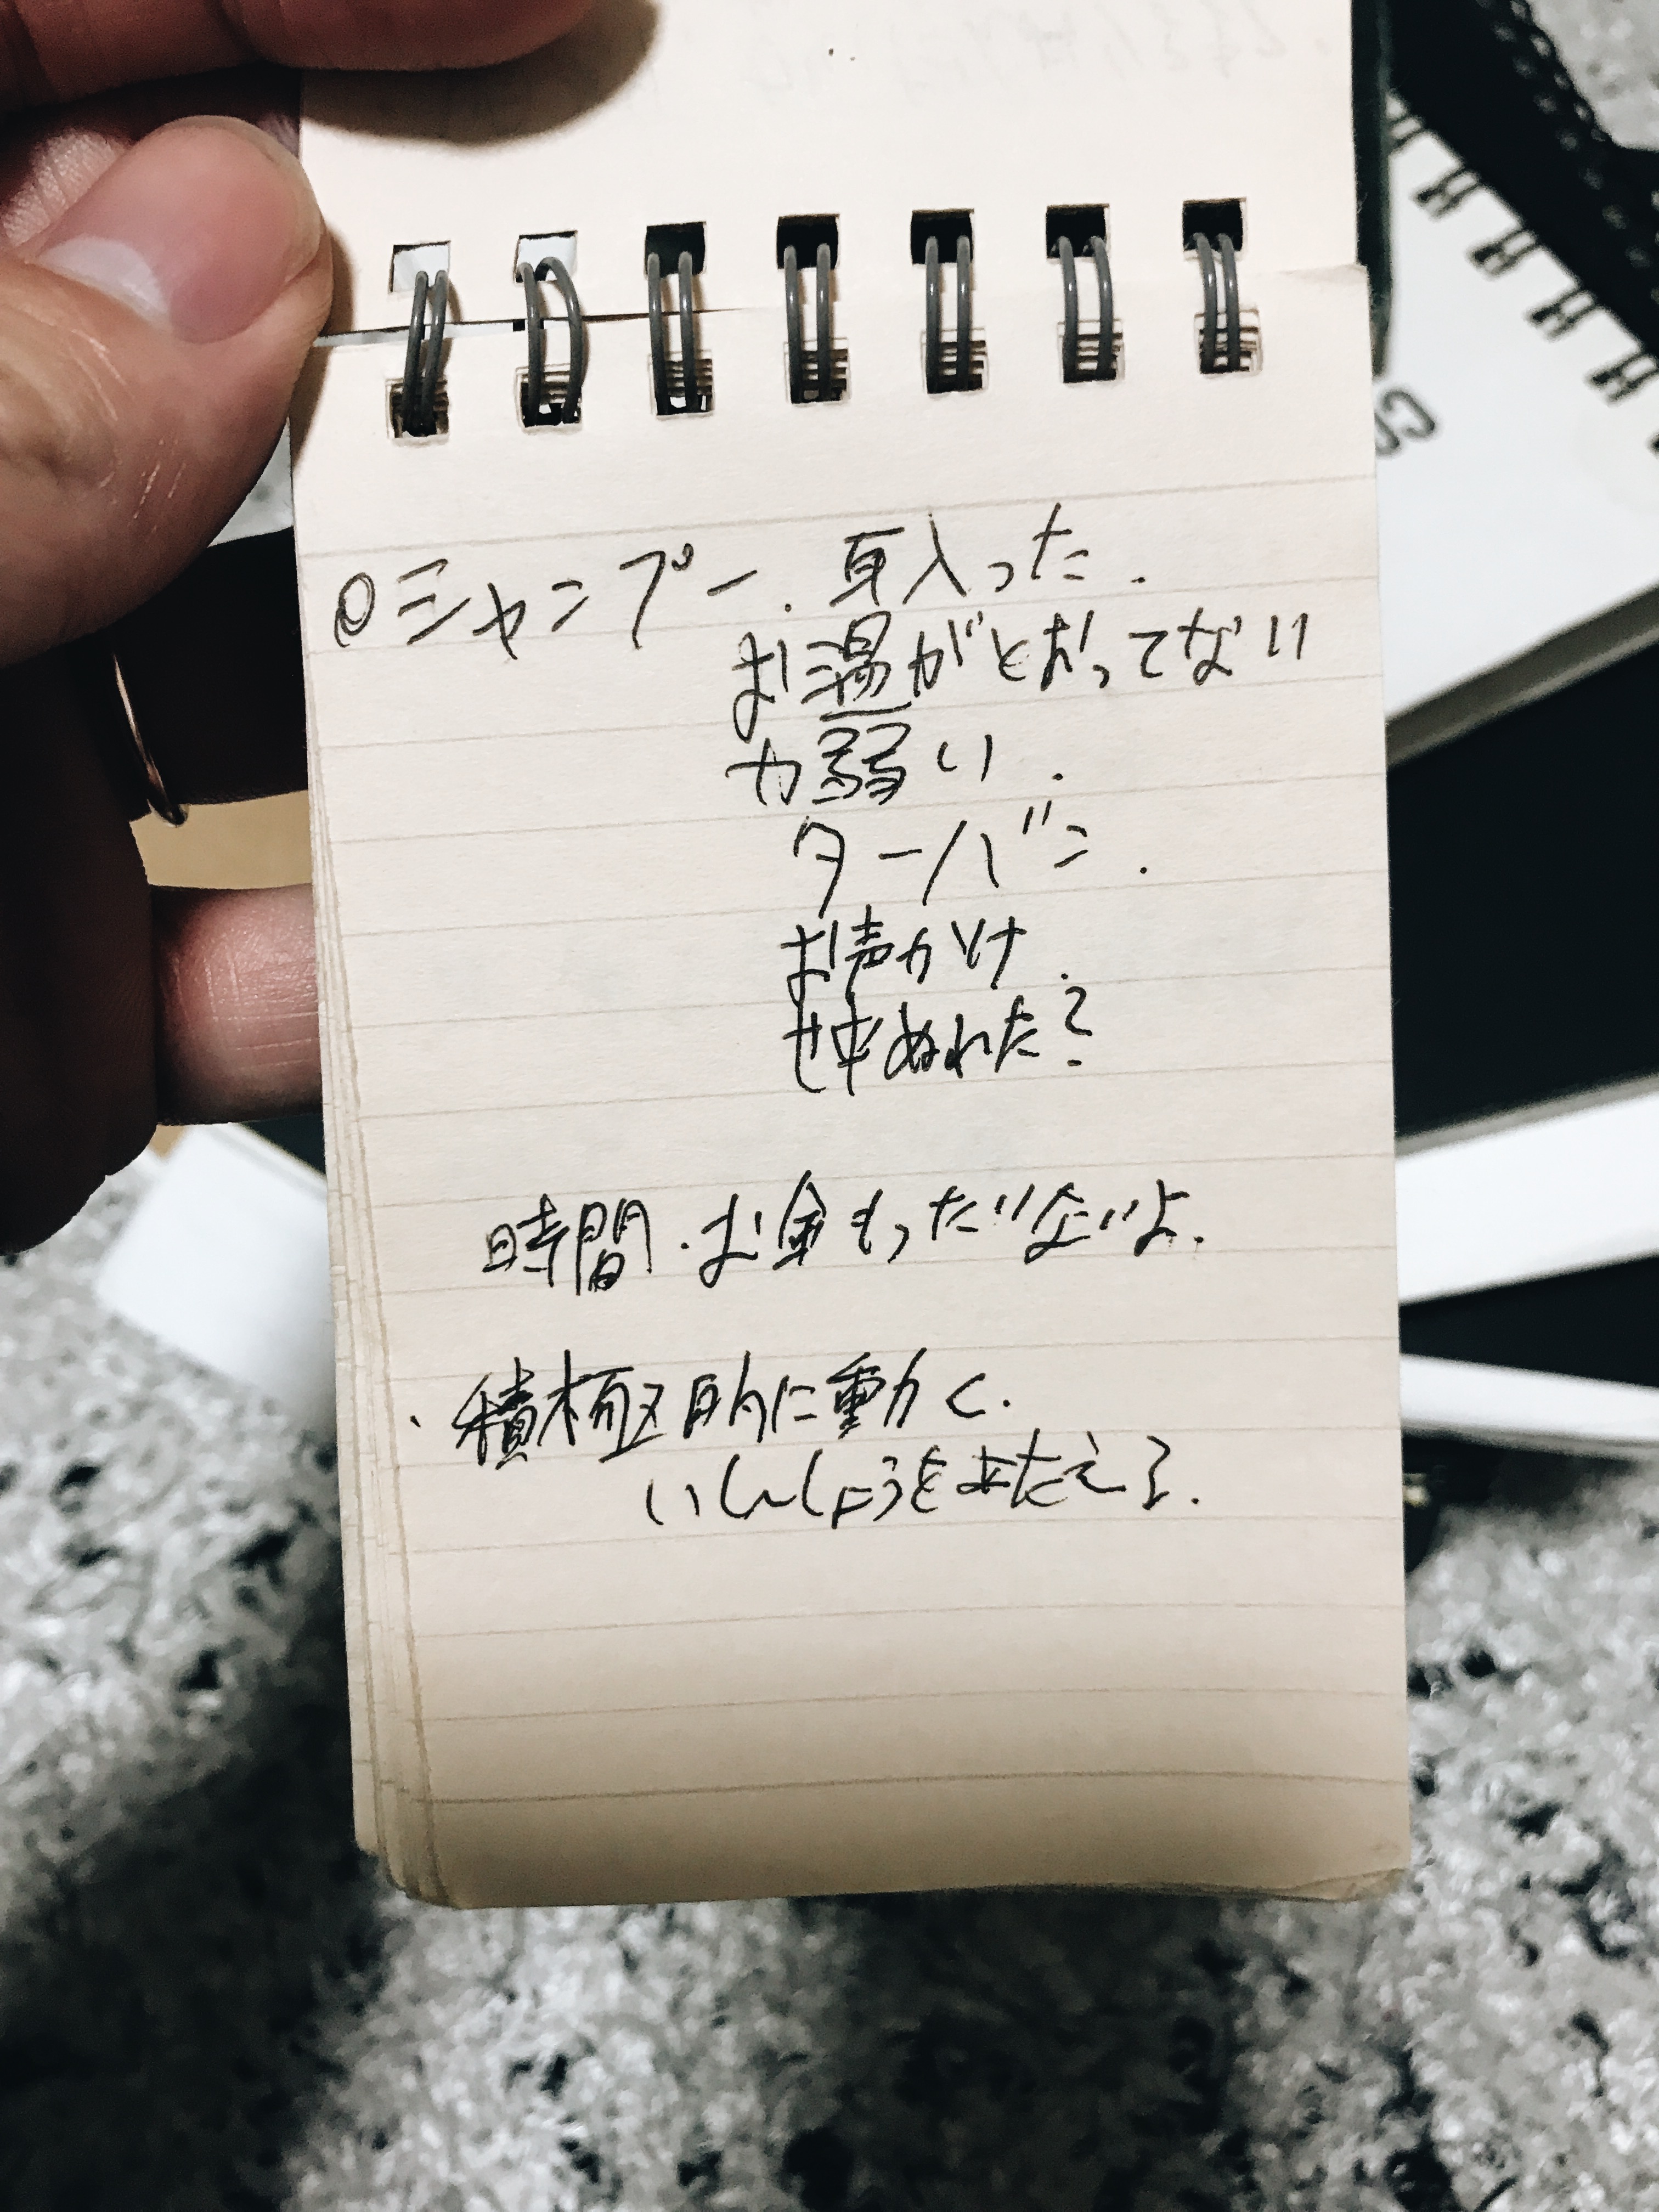 ◎シャンプー. 耳入った.
お湯がとおってない
力弱い.
ターバン.
お声かけ.
せ中ぬれた?
時間・お金もったいないよ.
・積極的に動く.
いんしょうをあたえる.